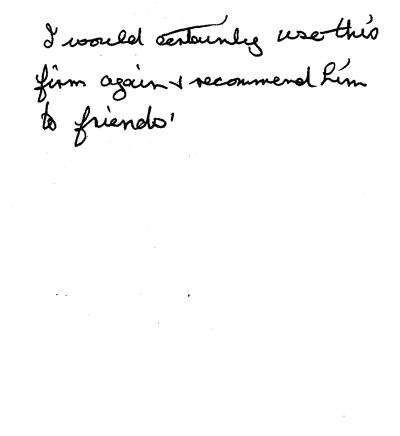 I would certainly use this
firm again & recommend him
to friends'